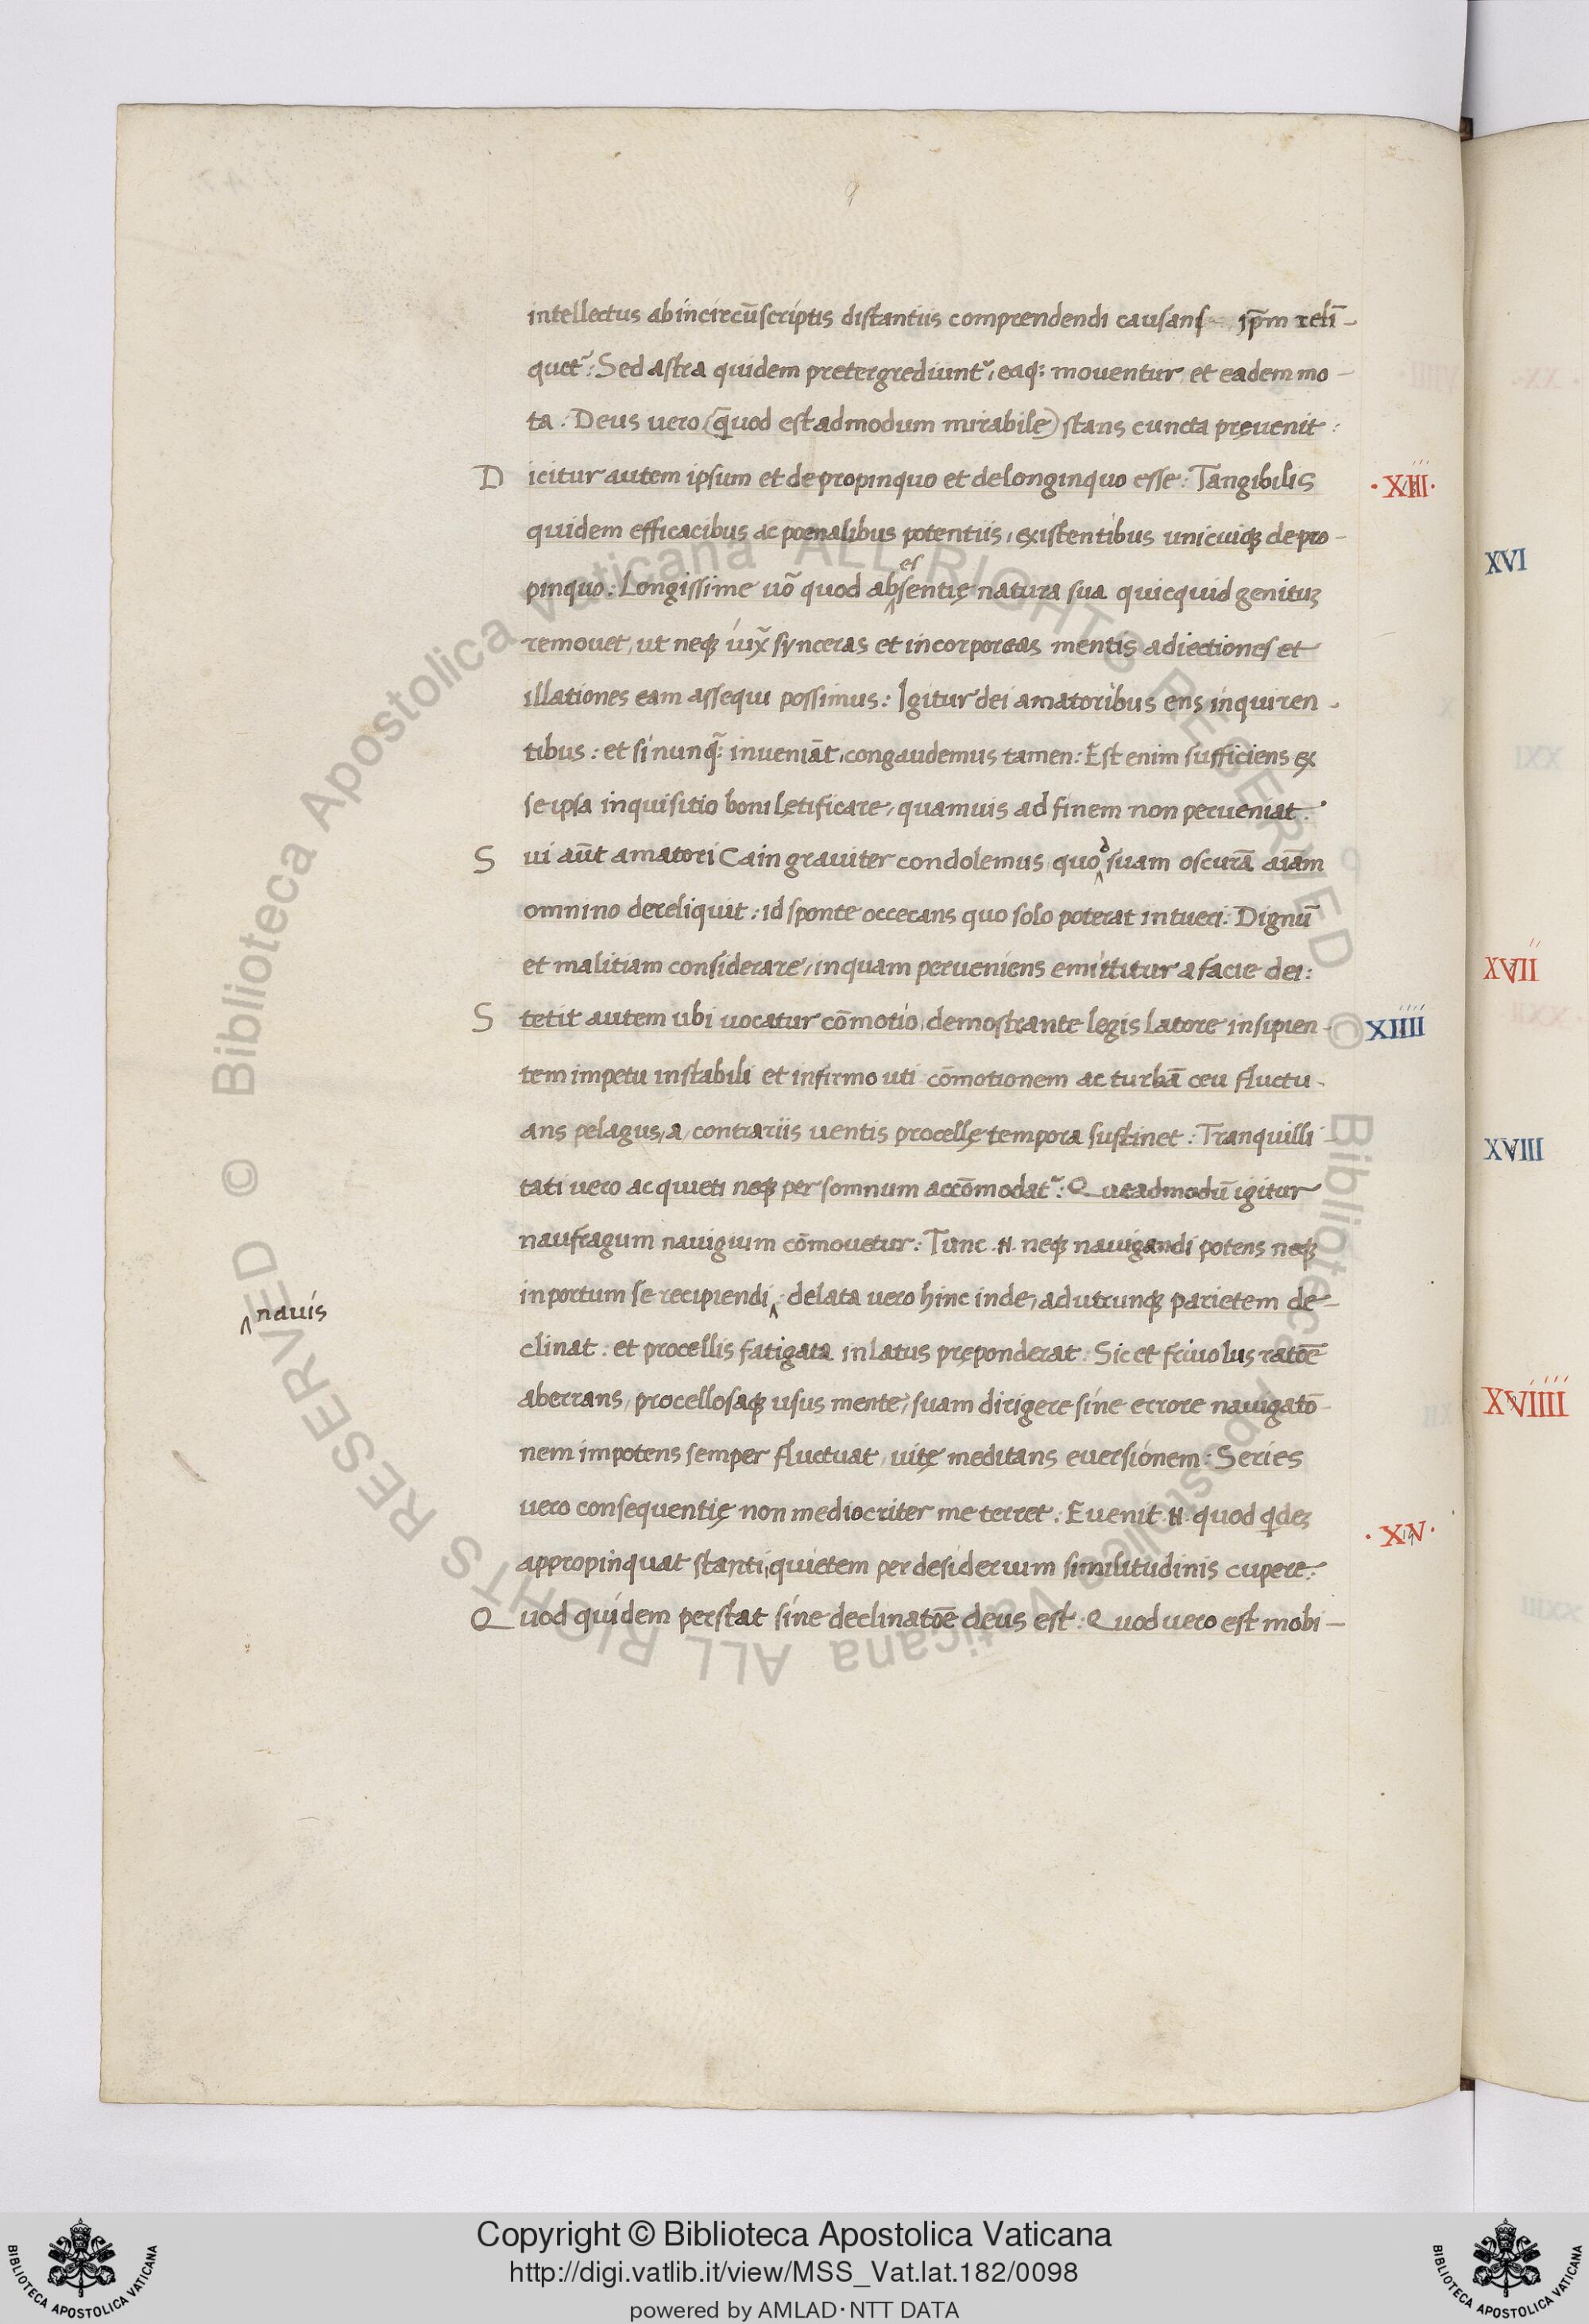 intellectus ab incircūscriptis distantiis comprendendi causans ip̄m reli̅-
quet᷑: Sed astra quidem pretergrediunt᷑, eaq: mouentur, et eadem mo-
ta. Deus uero (q̄uod est admodum mirabile) stans cuncta pręuenit:
Dicitur autem ipsum et de propinquo et de longinquo esse: Tangibilis
·XIII·
quidem efficacibus ac poenalibus potentiis, existentibus unicuiqꝫ de pro-
pinquo: Longissime uō quod ab^essentię natura sua quicquid genituꝫ
remouet, ut neqꝫ iux̄ synceras et incorporeas mentis adiectiones et
illationes eam assequi possimus: Igitur dei amatoribus ens inquiren-
tibus: et si nunq̄: inueniāt, congaudemus tamen: Est enim sufficiens ex
se ipsa inquisitio boni lętificare, quamuis ad finem non perueniat:
Sui aūt amatori Cain grauiter condolemus quod suam oscurā aīam
omnino dereliquit: id sponte occecans quo solo poterat intueri: Dignū
et malitiam considerare, in quam perueniens emittitur a facie dei:
Stetit autem ubi uocatur cōmotio, demostrante legis latore insipien-
XIIII
tem impetu instabili et infirmo uti cōmotionem ac turbā ceu fluctu-
ans pelagus, a, contrariis uentis procellę tempora sustinet: Tranquilli-
tati uero ac quieti neqꝫ per somnum accōmodat᷑: Queadmodū igitur
naufragum nauigium cōmouetur: Tunc .N. neqꝫ nauigandi potens neqꝫ
in portum se recipiendi^: delata uero hinc inde, ad utrunqꝫ parietem de-
^nauis
clinat: et procellis fatigata in latus pręponderat: Sic et friuolus ratōe
aberrans, procellosaqꝫ usus mente, suam dirigere sine errore nauigatō-
nem impotens semper fluctuat, uitę meditans euersionem: Series
uero consequentię non mediocriter me terret: Euenit .N. quod qⁱdeꝫ
·XV·
appropinquat stanti, quietem per desiderium similitudinis cupere:
Quod quidem perstat sine declinatōe deus est: Quod uero est mobi-
XVI
XVII
XVIII
XVIIII
Copyright © Biblioteca Apostolica Vaticana
http://digi.vatlib.it/view/MSS_Vat.lat.182/0098
powered by AMLAD·NTT DATA
BIBLIOTECA APOSTOLICA VATICANA
BIBLIOTECA APOSTOLICA VATICANA
© Biblioteca Apostolica Vaticana ALL RIGHTS RESERVED © Biblioteca Apostolica Vaticana ALL RIGHTS RESERVED